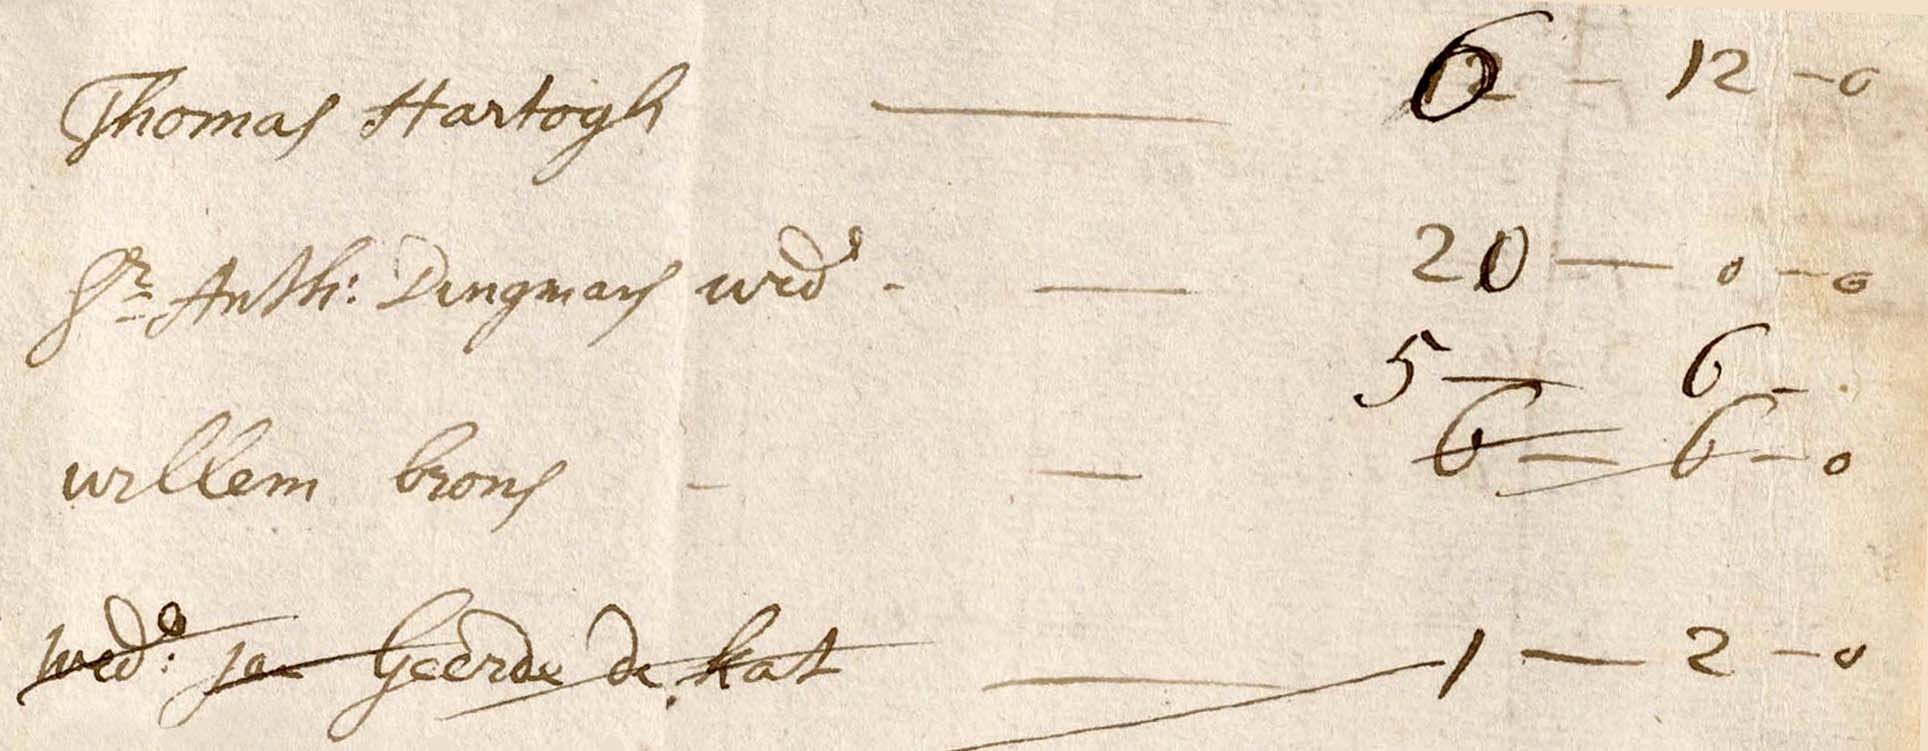 Thomas Hartogh — 6 – 12 – 0
Sr Anth: Dingmans wed – — 20 — 0 – 0
5 — 6 –
willem brons – — 6 — 6 – 0
wed: Jan Geerde de kat — 1 — 2 – 0